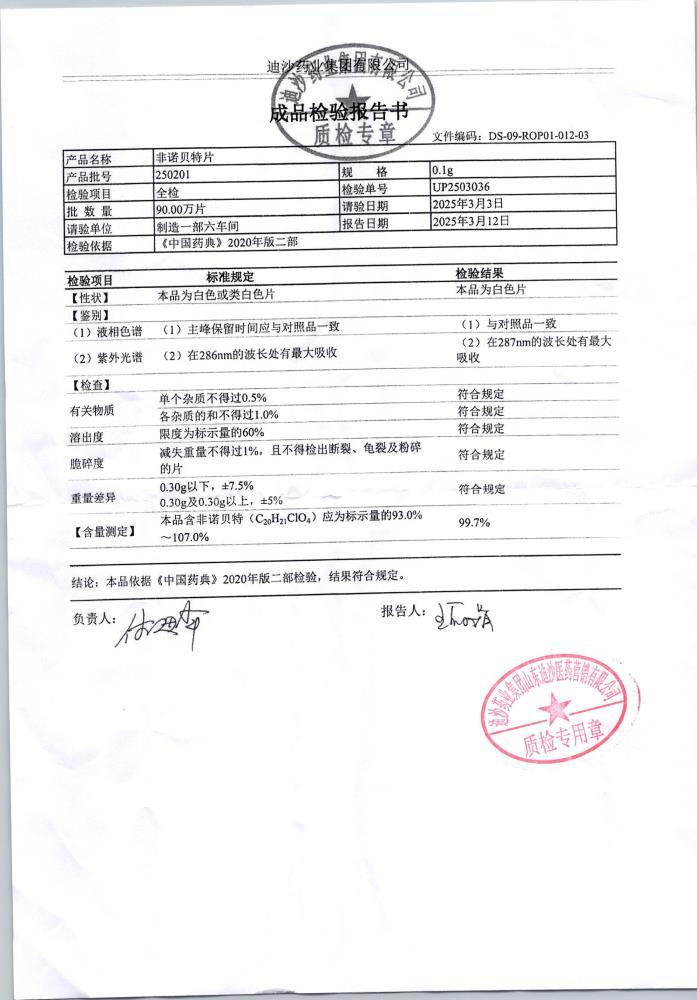 迪沙药业集团有限公司
迪沙药业集团有限公司
成品检验报告书
质检专章
文件编码：DS-09-ROP01-012-03
产品名称 非诺贝特片
产品批号 250201 规 格 0.1g
检验项目 全检 检验单号 UP2503036
批 数 量 90.00万片 请验日期 2025年3月3日
请验单位 制造一部六车间 报告日期 2025年3月12日
检验依据 《中国药典》2020年版二部
检验项目 标准规定 检验结果
【性状】 本品为白色或类白色片 本品为白色片
【鉴别】
（1）液相色谱 （1）主峰保留时间应与对照品一致 （1）与对照品一致
（2）紫外光谱 （2）在286nm的波长处有最大吸收 （2）在287nm的波长处有最大
吸收
【检查】
有关物质 单个杂质不得过0.5% 符合规定
各杂质的和不得过1.0% 符合规定
溶出度 限度为标示量的60% 符合规定
脆碎度 减失重量不得过1%，且不得检出断裂、龟裂及粉碎 符合规定
的片
重量差异 0.30g以下，±7.5% 符合规定
0.30g及0.30g以上，±5%
【含量测定】 本品含非诺贝特（C₂₀H₂₁ClO₄）应为标示量的93.0% 99.7%
～107.0%
结论：本品依据《中国药典》2020年版二部检验，结果符合规定。
负责人： 报告人：
迪沙药业集团山东迪沙医药营销有限公司
质检专用章